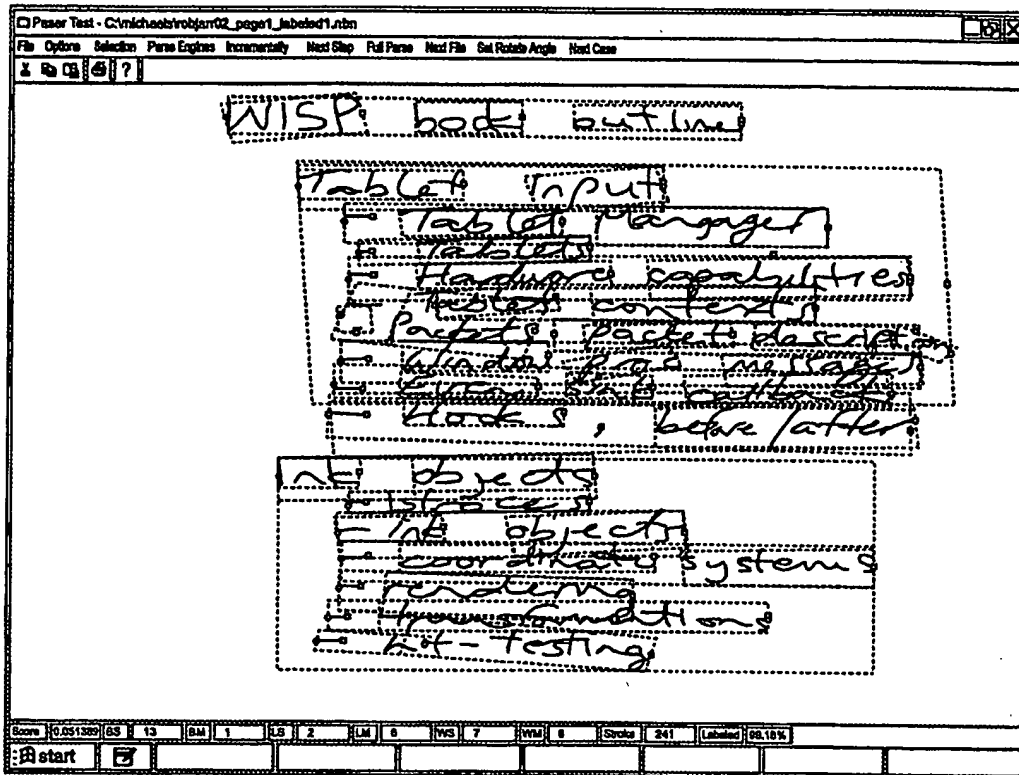 Paser Test - C:\michaels\robjarr02_page1_labeled1.nbn
File Options Selection Parse Engines Incrementally Next Step Full Parse Next File Set Rotate Angle Next Case
?
WISP book outline
Tablet Input
- Tablet Mangager
- Tablets
- Hardware capabilities
- Tablet contexts
- Packets packet description
- Window Pros messages
- Event sink callbacks
- Hooks, before/after
Ink objects
- Istrokes
- Ink objects
- coordinate systems
- rendering
- transformations
- hit-testing
Score 0.051389 BS 13 BM 1 LS 2 LM 6 WS 7 WM 6 Stroke 241 Labeled 99.18%
start